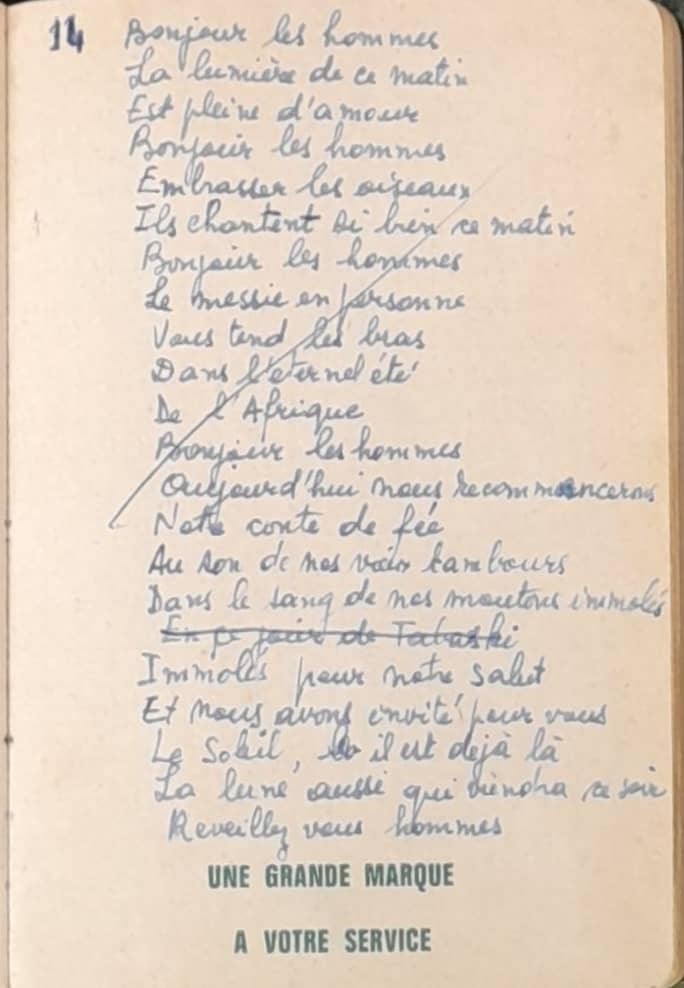 14
Bonjour les hommes
La lumière de ce matin
Est pleine d'amour
Bonjour les hommes
Embrasser les oiseaux
Ils chantent si bien ce matin
Bonjour les hommes
Le messie en personne
Vous tend les bras
Dans l'éternel été
De l'Afrique
Bonjour les hommes
Aujourd'hui nous recommencerons
Notre conte de fée
Au son de nos vieux tambours
Dans le sang de nos moutons immolés
En ce jour de Tabaski
Immolés pour notre salut
Et nous avons invité pour vous
Le Soleil, il est dejà là
La lune aussi qui viendra ce soir
Reveillez vous hommes
UNE GRANDE MARQUE
A VOTRE SERVICE